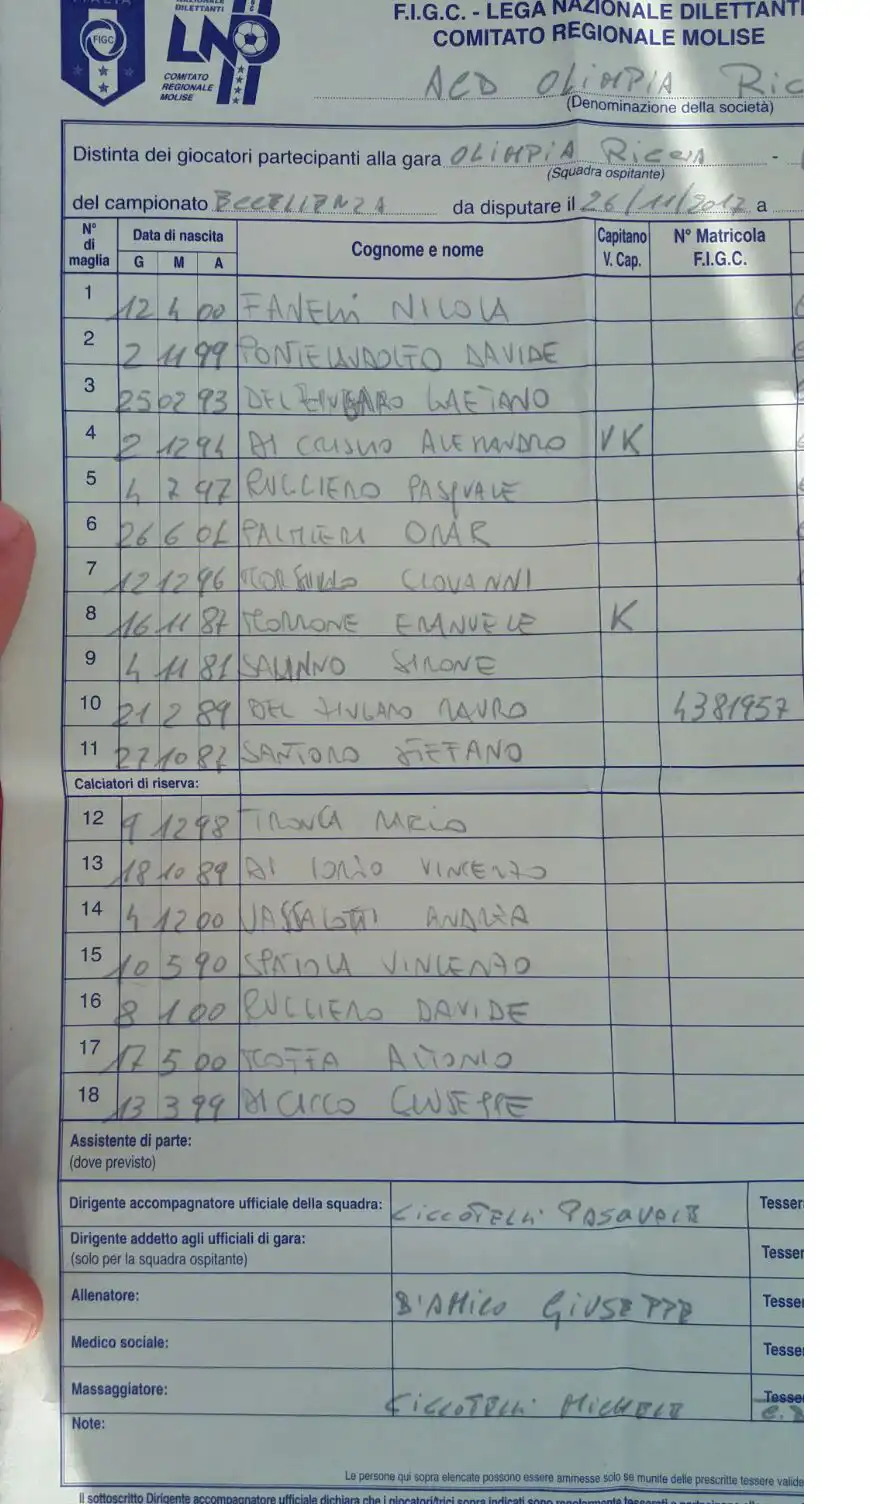 ITALIA
FIGC
NAZIONALE
DILETTANTI
LND
COMITATO
REGIONALE
MOLISE
F.I.G.C. - LEGA NAZIONALE DILETTANTI
COMITATO REGIONALE MOLISE
ACD OLIMPIA Ric
(Denominazione della società)
Distinta dei giocatori partecipanti alla gara OLIMPIA Riccia -
(Squadra ospitante)
del campionato ECCELLENZA da disputare il 26/11/2017 a
N° di maglia Data di nascita G M A Cognome e nome Capitano V. Cap. N° Matricola F.I.G.C.
1 12 4 00 FANELLI NICOLA
2 2 11 99 DAVIDE
3 25 02 93 GAETANO
4 2 12 94 DI ALESSANDRO VK
5 4 7 97 RUGGIERO PASQUALE
6 26 6 01 PALMIERI OMAR
7 12 12 96 GIOVANNI
8 16 11 87 MORRONE EMANUELE K
9 4 11 81 SIMONE
10 21 2 89 DEL MAURO 4381957
11 27 10 87 SANTORO STEFANO
Calciatori di riserva:
12 9 12 98
13 18 10 89 DI IORIO VINCENZO
14 4 12 00 VASSALOTTI ANDREA
15 10 5 90 VINCENZO
16 8 1 00 RUGGIERO DAVIDE
17 17 5 00 ANTONIO
18 13 3 99 DI CICCO GIUSEPPE
Assistente di parte:
(dove previsto)
Dirigente accompagnatore ufficiale della squadra: CICCOTELLI PASQUALE Tesser
Dirigente addetto agli ufficiali di gara:
(solo per la squadra ospitante) Tesser
Allenatore: D'AMICO GIUSEPPE Tesser
Medico sociale: Tesser
Massaggiatore: CICCOTELLI MICHELE Tesser
Note:
Le persone qui sopra elencate possono essere ammesse solo se munite delle prescritte tessere valide
Il sottoscritto Dirigente accompagnatore ufficiale dichiara che i giocatori/trici sopra indicati sono regolarmente tesserati